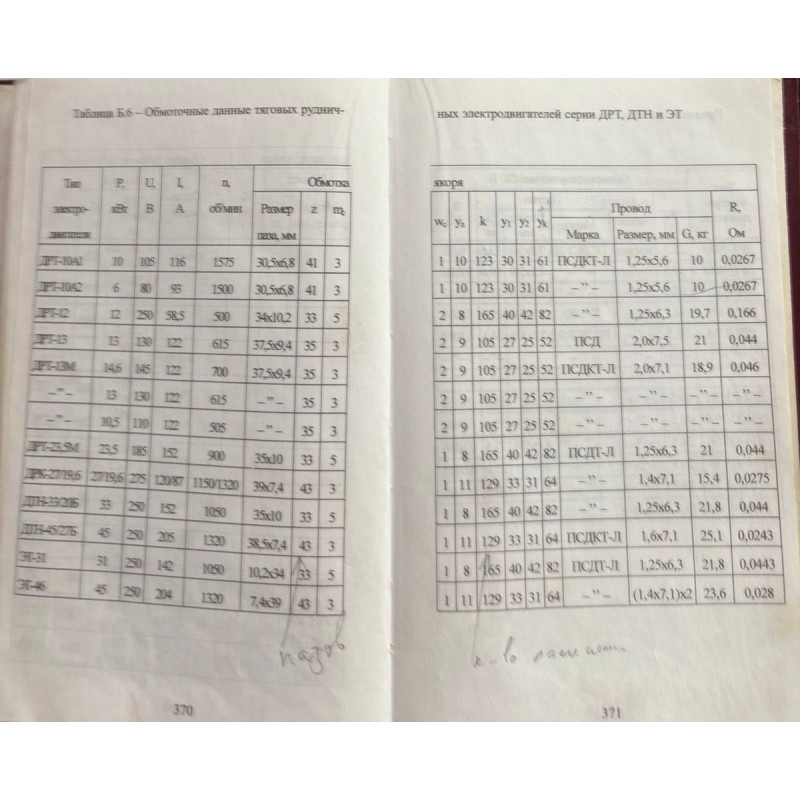 Таблица Б.6 – Обмоточные данные тяговых руднич-
Тип электро-двигателя P, кВт U, В I, А n, об/мин Обмотка
Размер паза, мм z m_c
ДРТ-10А1 10 105 116 1575 30,5х6,8 41 3
ДРТ-10А2 6 80 93 1500 30,5х6,8 41 3
ДРТ-12 12 250 58,5 500 34х10,2 33 5
ДРТ-13 13 130 122 615 37,5х9,4 35 3
ДРТ-13М 14,6 145 122 700 37,5х9,4 35 3
– ” – 13 130 122 615 – ” – 35 3
– ” – 10,5 110 122 505 – ” – 35 3
ДРТ-23,5М 23,5 185 152 900 35х10 33 5
ДРК-27/19,6 27/19,6 275 120/87 1150/1320 39х7,4 43 3
ДТН-33/20Б 33 250 152 1050 35х10 33 5
ДТН-45/27Б 45 250 205 1320 38,5х7,4 43 3
ЭТ-31 31 250 142 1050 10,2х34 33 5
ЭТ-46 45 250 204 1320 7,4х39 43 3
пазов
370
ных электродвигателей серии ДРТ, ДТН и ЭТ
якоря
w_c y_z k y_1 y_2 y_k Провод R, Ом
Марка Размер, мм G, кг
1 10 123 30 31 61 ПСДКТ-Л 1,25х5,6 10 0,0267
1 10 123 30 31 61 – ” – 1,25х5,6 10 0,0267
2 8 165 40 42 82 – ” – 1,25х6,3 19,7 0,166
2 9 105 27 25 52 ПСД 2,0х7,5 21 0,044
2 9 105 27 25 52 ПСДКТ-Л 2,0х7,1 18,9 0,046
2 9 105 27 25 52 – ” – – ” – – ” – – ” –
2 9 105 27 25 52 – ” – – ” – – ” – – ” –
1 8 165 40 42 82 ПСДТ-Л 1,25х6,3 21 0,044
1 11 129 33 31 64 – ” – 1,4х7,1 15,4 0,0275
1 8 165 40 42 82 – ” – 1,25х6,3 21,8 0,044
1 11 129 33 31 64 ПСДКТ-Л 1,6х7,1 25,1 0,0243
1 8 165 40 42 82 ПСДТ-Л 1,25х6,3 21,8 0,0443
1 11 129 33 31 64 – ” – (1,4х7,1)х2 23,6 0,028
к-во
371